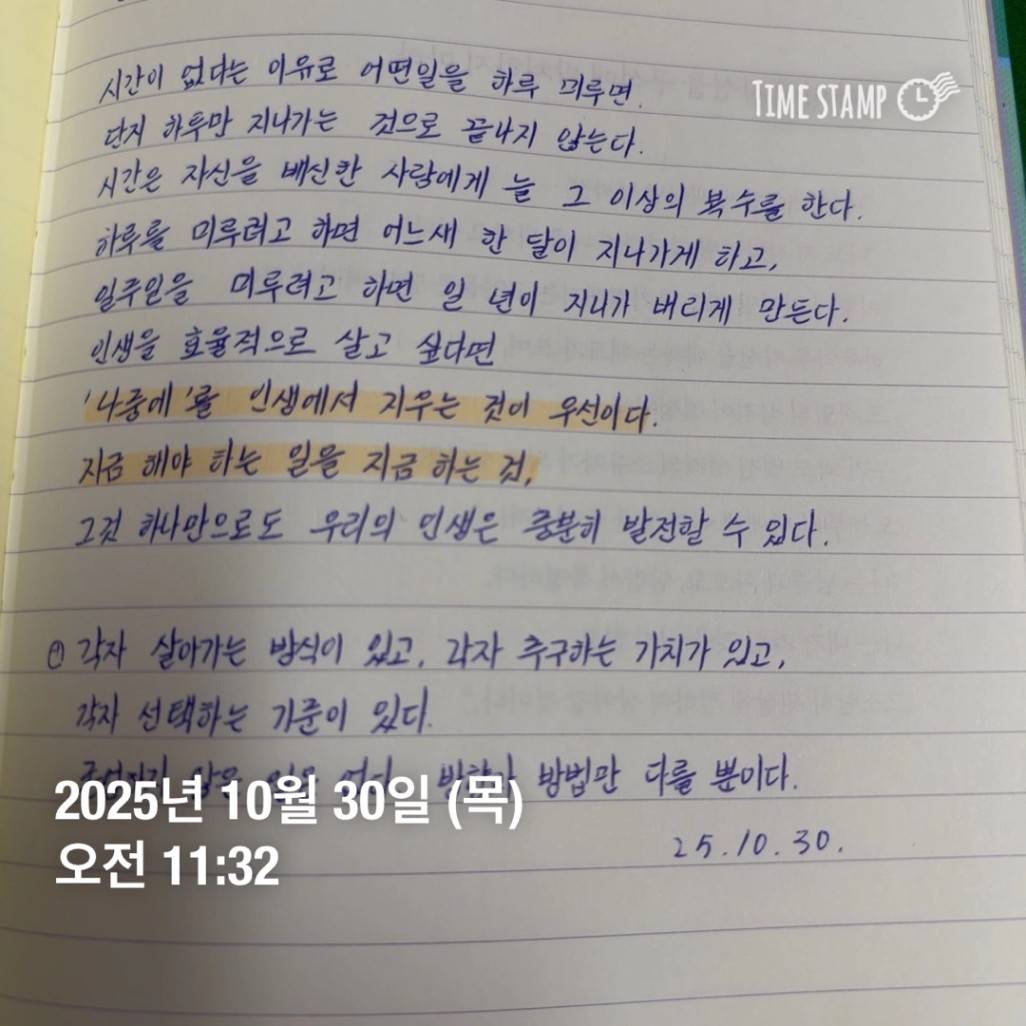 시간이 없다는 이유로 어떤일을 하루 미루면.
TIME STAMP
단지 하루만 지나가는 것으로 끝나지 않는다.
시간은 자신을 배신한 사람에게 늘 그 이상의 복수를 한다.
하루를 미루려고 하면 어느새 한 달이 지나가게 하고,
일주일을 미루려고 하면 일 년이 지나가 버리게 만든다.
인생을 효율적으로 살고 싶다면
'나중에'를 인생에서 지우는 것이 우선이다.
지금 해야 하는 일을 지금 하는 것,
그것 하나만으로도 우리의 인생은 충분히 발전할 수 있다.
각자 살아가는 방식이 있고, 각자 추구하는 가치가 있고,
각자 선택하는 기준이 있다.
방법만 다를 뿐이다.
2025년 10월 30일 (목)
오전 11:32
25.10.30.